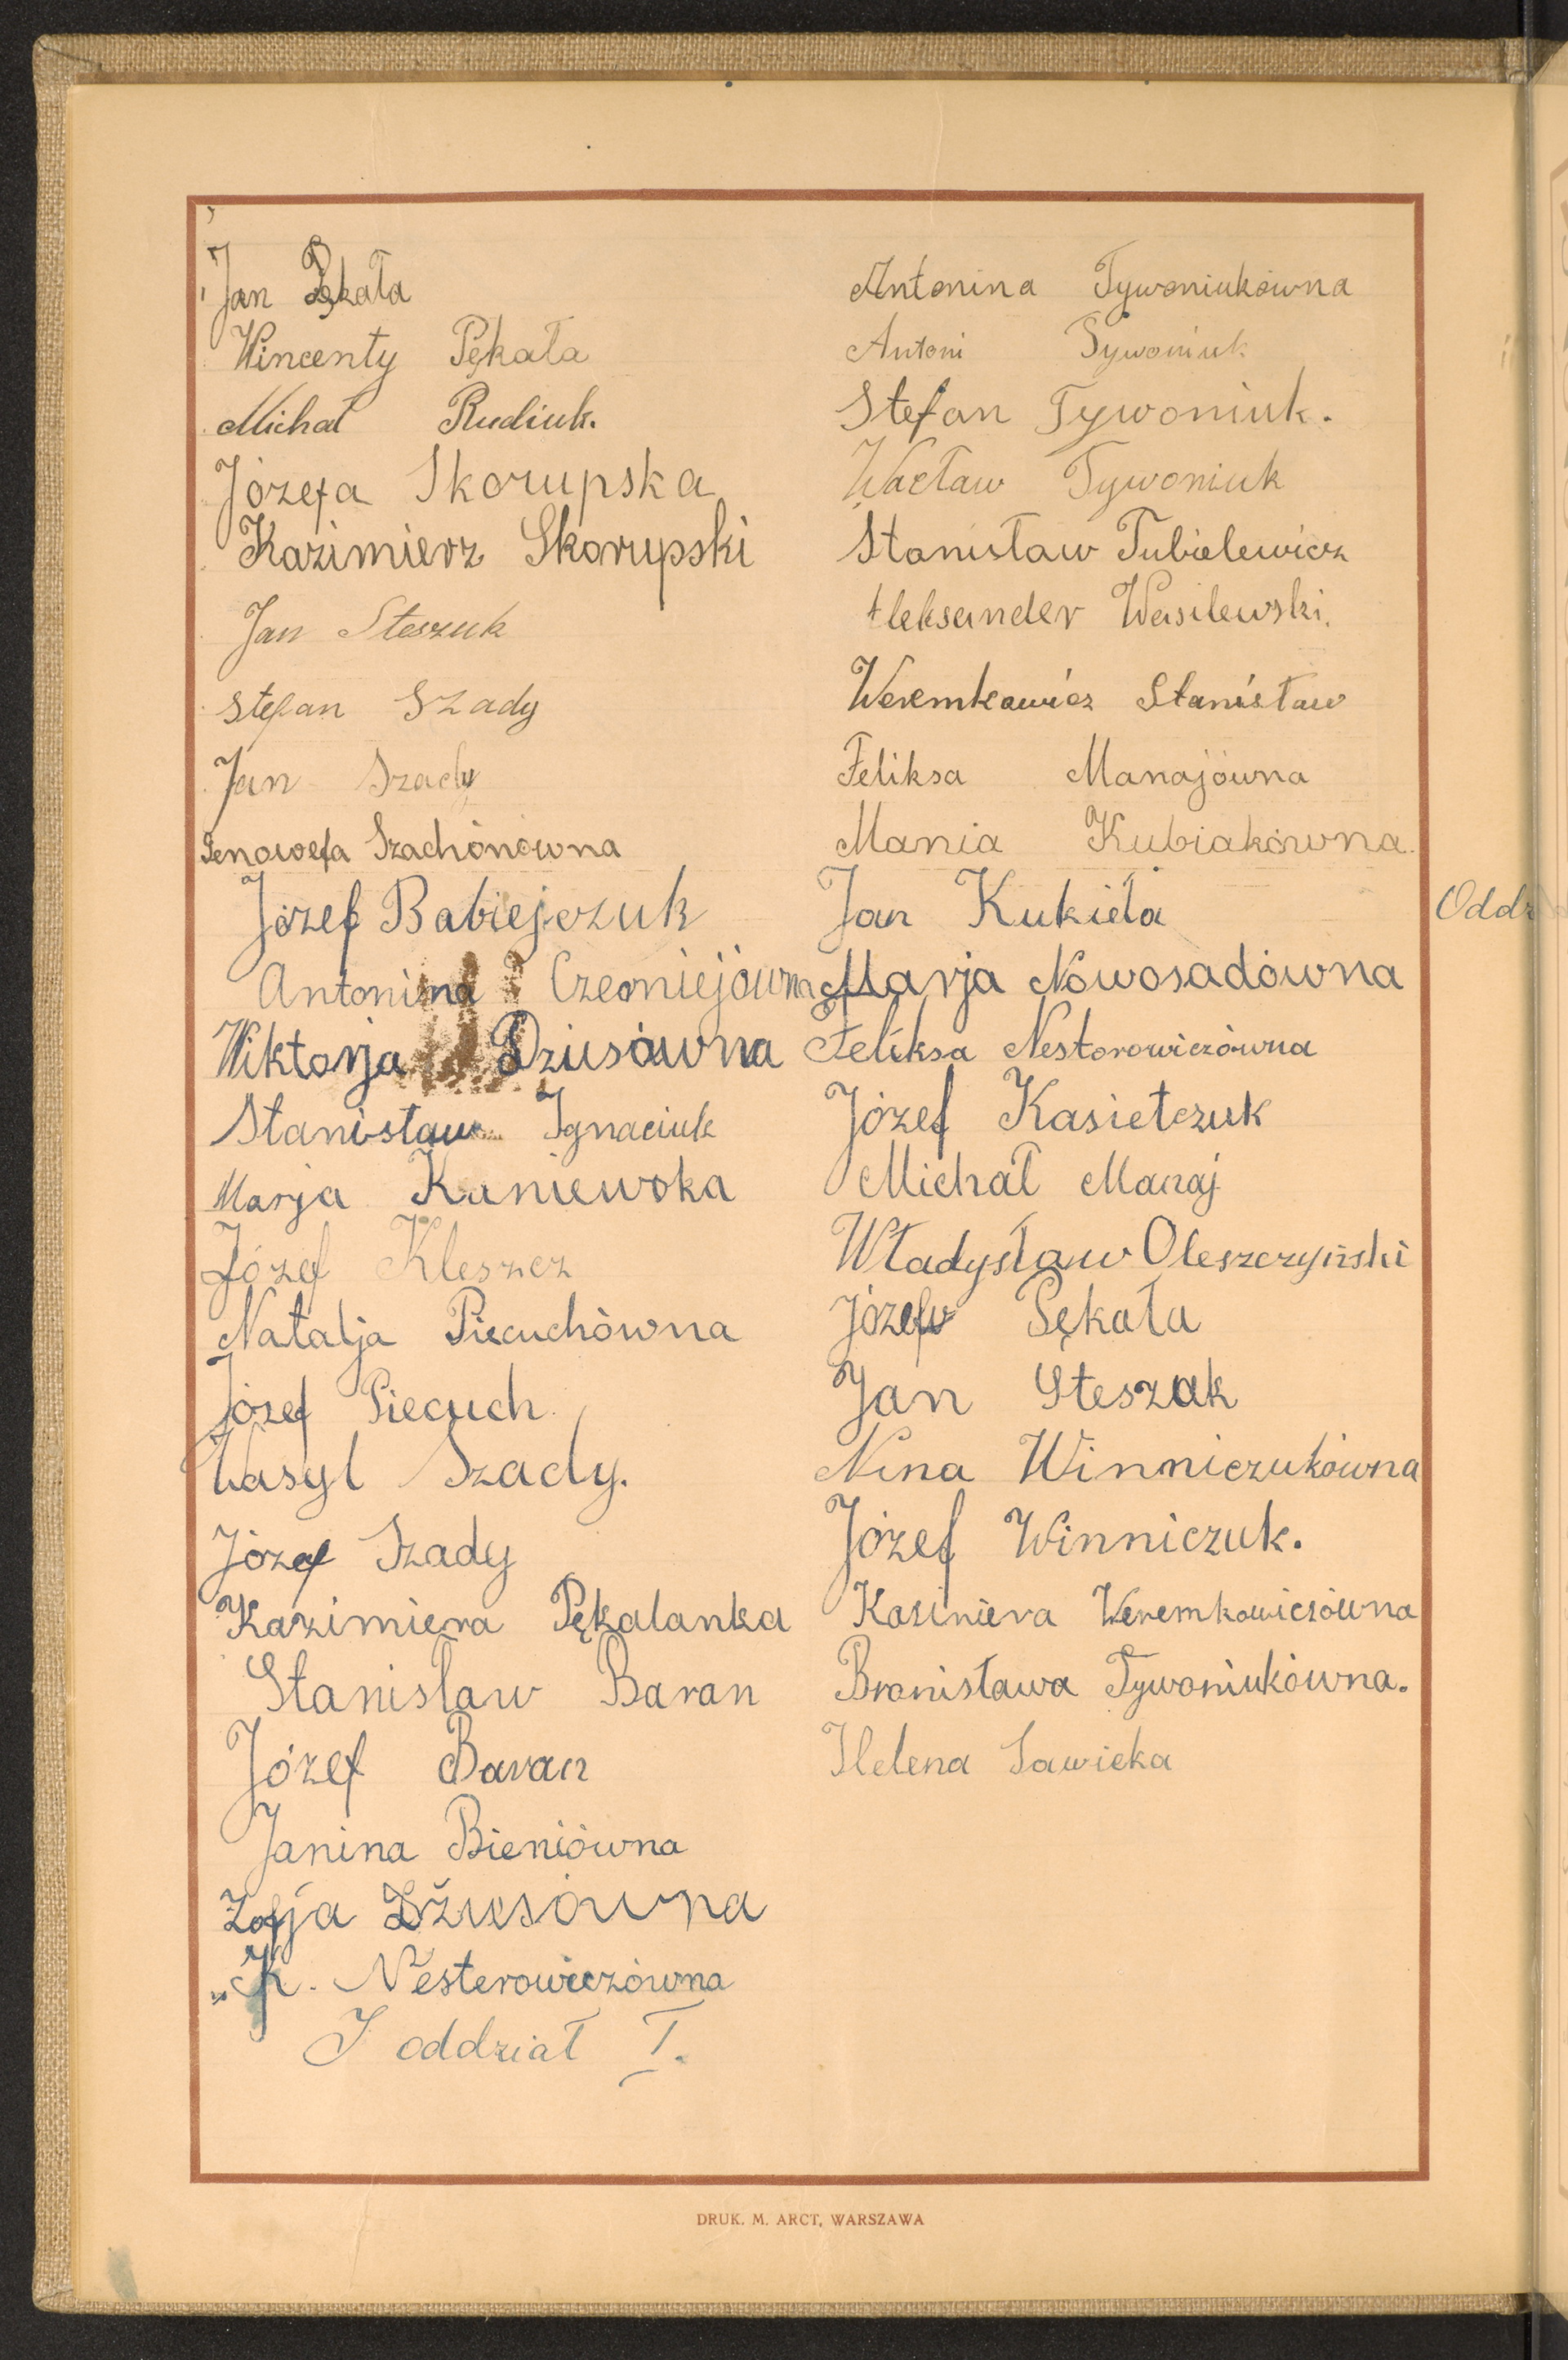 Jan Pękała
Wincenty Pękała
Michał Rudiuk.
Józefa Skorupska
Kazimierz Skorupski
Jan Steszuk
Stefan Szady
Jan Szady
Genowefa Szachónówna
Józef Babiejczuk
Antonina Czerniejówna
Wiktorja Dziusówna
Stanisław Ignaciuk
Marja Kaniewska
Józef Kleszcz
Natalja Piecuchówna
Józef Piecuch
Wasyl Szady.
Józef Szady
Kazimiera Pękalanka
Stanisław Baran
Józef Baran
Janina Bieniówna
Zofja Dżiusówna
K. Nesterowiczówna
I oddział I.
Antonina Tywoniukówna
Antoni Tywoniuk
Stefan Tywoniuk.
Wacław Tywoniuk
Stanisław Tubielewicz
Aleksander Wasilewski.
Weremkowicz Stanisław
Feliksa Manajówna
Mania Kubiakówna.
Jan Kukieła
Marja Nowosadówna
Feliksa Nestorowiczówna
Józef Kasietczuk
Michał Manaj
Władysław Oleszczyński
Józef Pękała
Jan Steszak
Nina Winniczukówna
Józef Winniczuk.
Kazimiera Weremkowiczówna
Bronisława Tywoniukówna.
Helena Sawicka
DRUK. M. ARCT, WARSZAWA